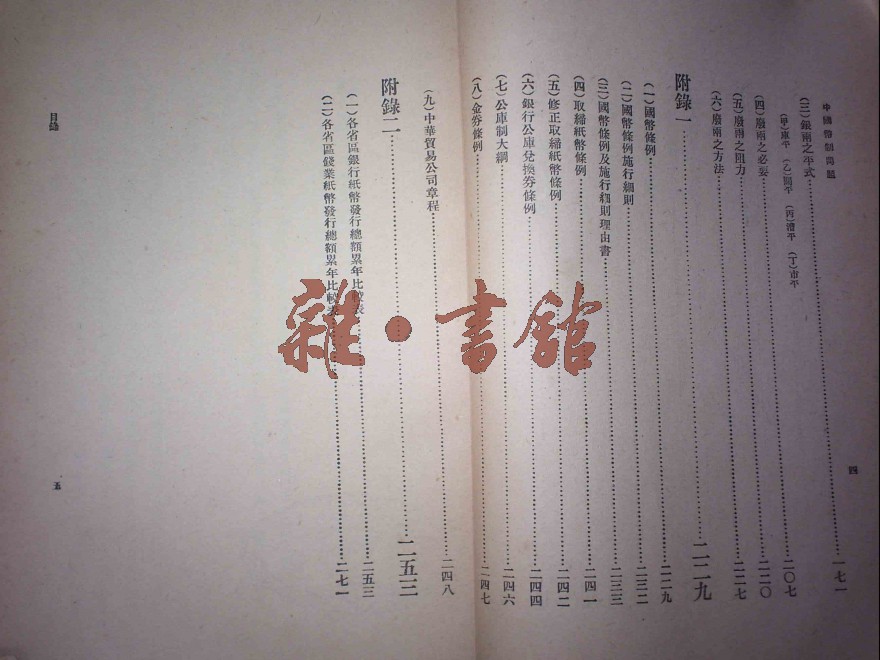 中國幣制問題
四
(三)銀兩之平式……一七一
(甲)庫平 (乙)關平 (丙)漕平 (丁)市平
(四)廢兩之必要……二〇七
(五)廢兩之阻力……二二〇
(六)廢兩之方法……二二七
附錄一……二二九
(一)國幣條例……二二九
(二)國幣條例施行細則……二三二
(三)國幣條例及施行細則理由書……二三三
(四)取締紙幣條例……二四一
(五)修正取締紙幣條例……二四二
(六)銀行公庫兌換券條例……二四四
(七)公庫制大綱……二四六
(八)金券條例……二四七
(九)中華貿易公司章程……二四八
附錄二……二五三
(一)各省區銀行紙幣發行總額累年比較表……二五三
(二)各省區錢業紙幣發行總額累年比較表……二七一
目錄
五
雜·書館